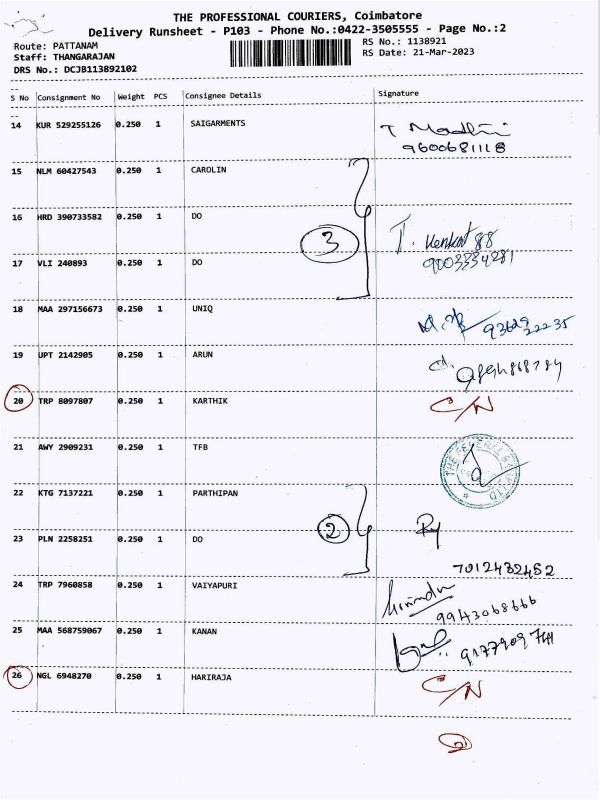 THE PROFESSIONAL COURIERS, Coimbatore
Delivery Runsheet - P103 - Phone No.:0422-3505555 - Page No.:2
Route: PATTANAM RS No.: 1138921
Staff: THANGARAJAN RS Date: 21-Mar-2023
DRS No.: DCJB113892102
S No Consignment No Weight PCS Consignee Details Signature
14 KUR 529255126 0.250 1 SAIGARMENTS
9600681118
15 NLM 60427543 0.250 1 CAROLIN
16 HRD 390733582 0.250 1 DO
3 T. Venkat 88
17 VLI 240893 0.250 1 DO 9003334281
18 MAA 297156673 0.250 1 UNIQ
19 UPT 2142905 0.250 1 ARUN
20 TRP 8097807 0.250 1 KARTHIK C/N
21 AWY 2909231 0.250 1 TFB
22 KTG 7137221 0.250 1 PARTHIPAN
2
23 PLN 2258251 0.250 1 DO
7012432452
24 TRP 7960858 0.250 1 VAIYAPURI
9943068666
25 MAA 568759067 0.250 1 KANAN
26 NGL 6948270 0.250 1 HARIRAJA C/N
2